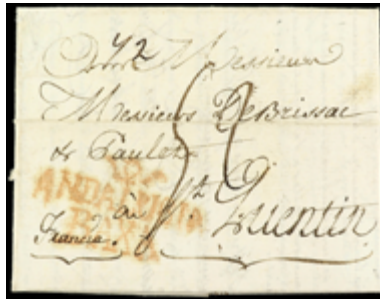 Messieurs
Messieurs DeBrissac
& Paulet
ANDALUCIA
BAXA
à St. Quentin
Francia.